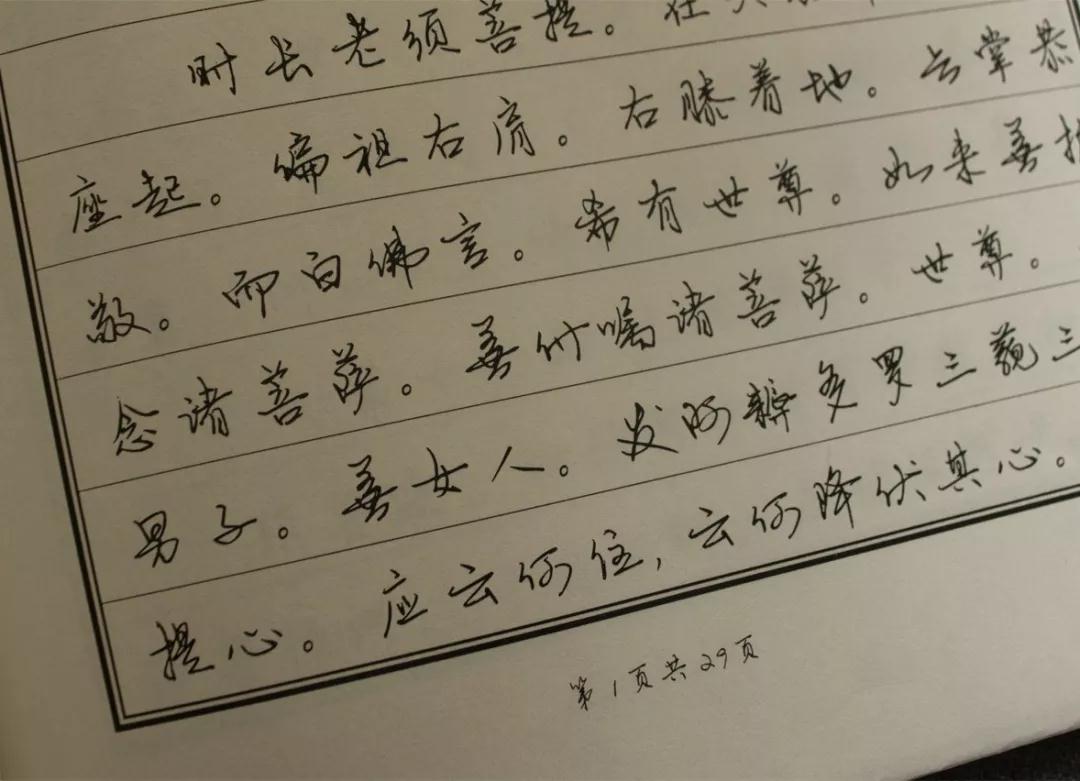 时长老须菩提。在大
座起。偏袒右肩。右膝着地。合掌恭
敬。而白佛言。希有世尊。如来善
念诸菩萨。善付嘱诸菩萨。世尊。
男子。善女人。发阿耨多罗三藐三
提心。应云何住,云何降伏其心。
第1页共29页